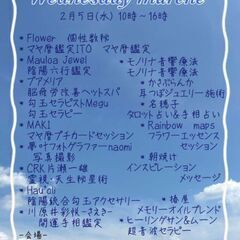 Wednesday Marche
2月5日(水) 10時~16時
・Flower 個性數秘
・マヤ暦鑑定ITO マヤ暦鑑定
・Mauloa Jewel
陰陽六行鑑定
・プアメリア
脳骨労改善ヘッドスパ
・勾玉セラピストMegu
勾玉セラピー
・MAKI
マヤ暦プチカードセッション
・夢叶フォトグラファーnaomi
写真撮影
・CRK片瀬一雄
霊視・天生秘星術
・Hau'oli
陰陽統合勾玉アクセサリー
・川原井彩悦-さえき-
開運手相鑑定
-会場-
・モノリナ音響療法
モノリナ音響療法
・かさぶらんか
耳つぼジュエリー施術
・名穂子
タロット占い&手相占い
・Rainbow maps
フラワーエッセンス
セッション
・朝焼け
インスピレーション
メッセージ
・椿屋
メモリーオイルブレンド
・ヒーリングサン&ムーン
超音波セラピー